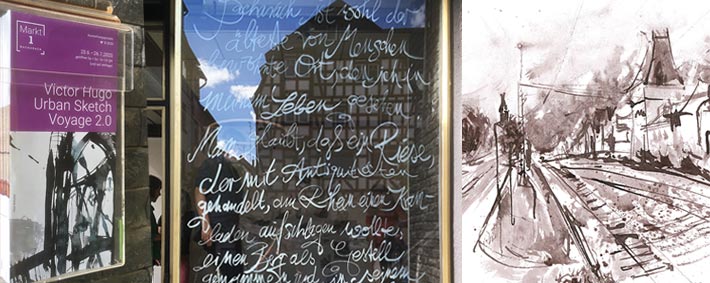 Markt
1
BACHARACH
Victor Hugo
Urban Sketch
Voyage 2.0
Bacharach ist wohl der
älteste von Menschen
bewohnte Ort, den ich in
meinem Leben gesehen.
Man glaubt, daß ein Riese,
der mit Antiquitäten
gehandelt, am Rhein einen
laden aufschlagen wollte,
einen Berg als Gestell
genommen und in seinem